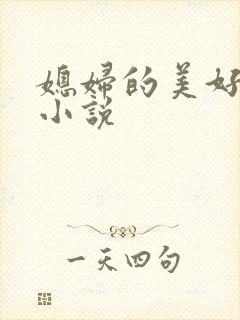 媳婦的美好
小説
一天四句